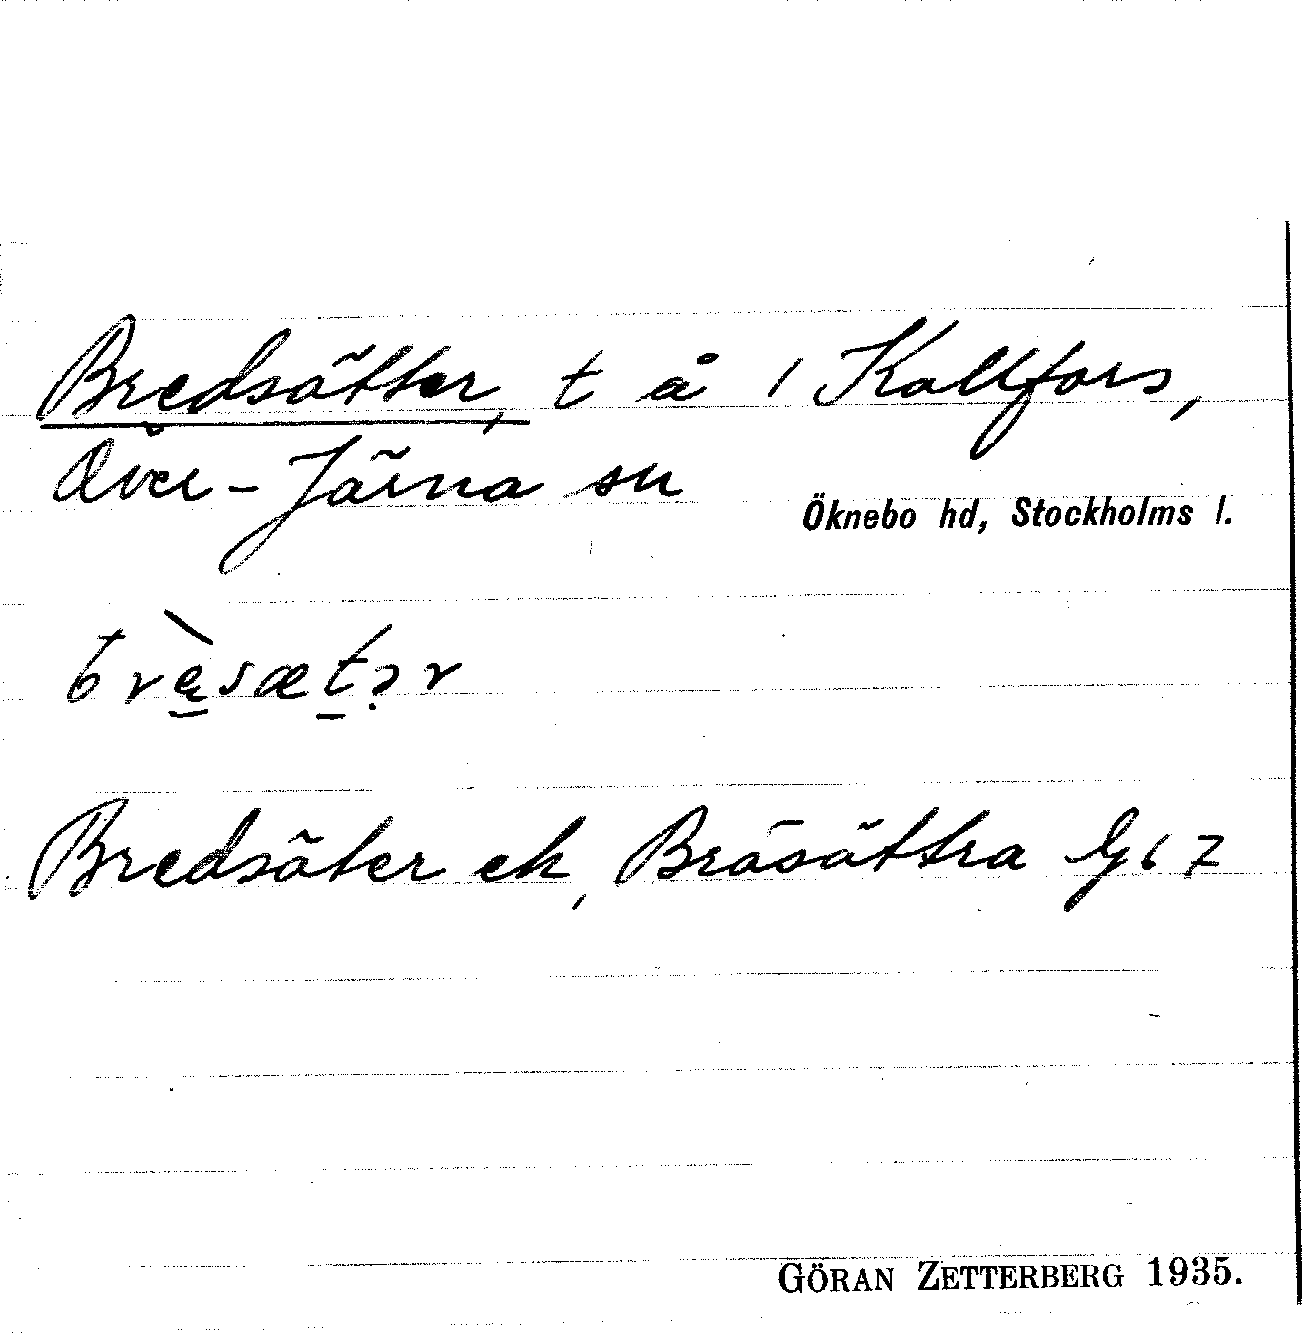 Bredsätter, t å 1 Kallfors,
Över-Järna sn
Öknebo hd, Stockholms l.
brèsætər
Bredsäter ek, Bräsättra
GÖRAN ZETTERBERG 1935.